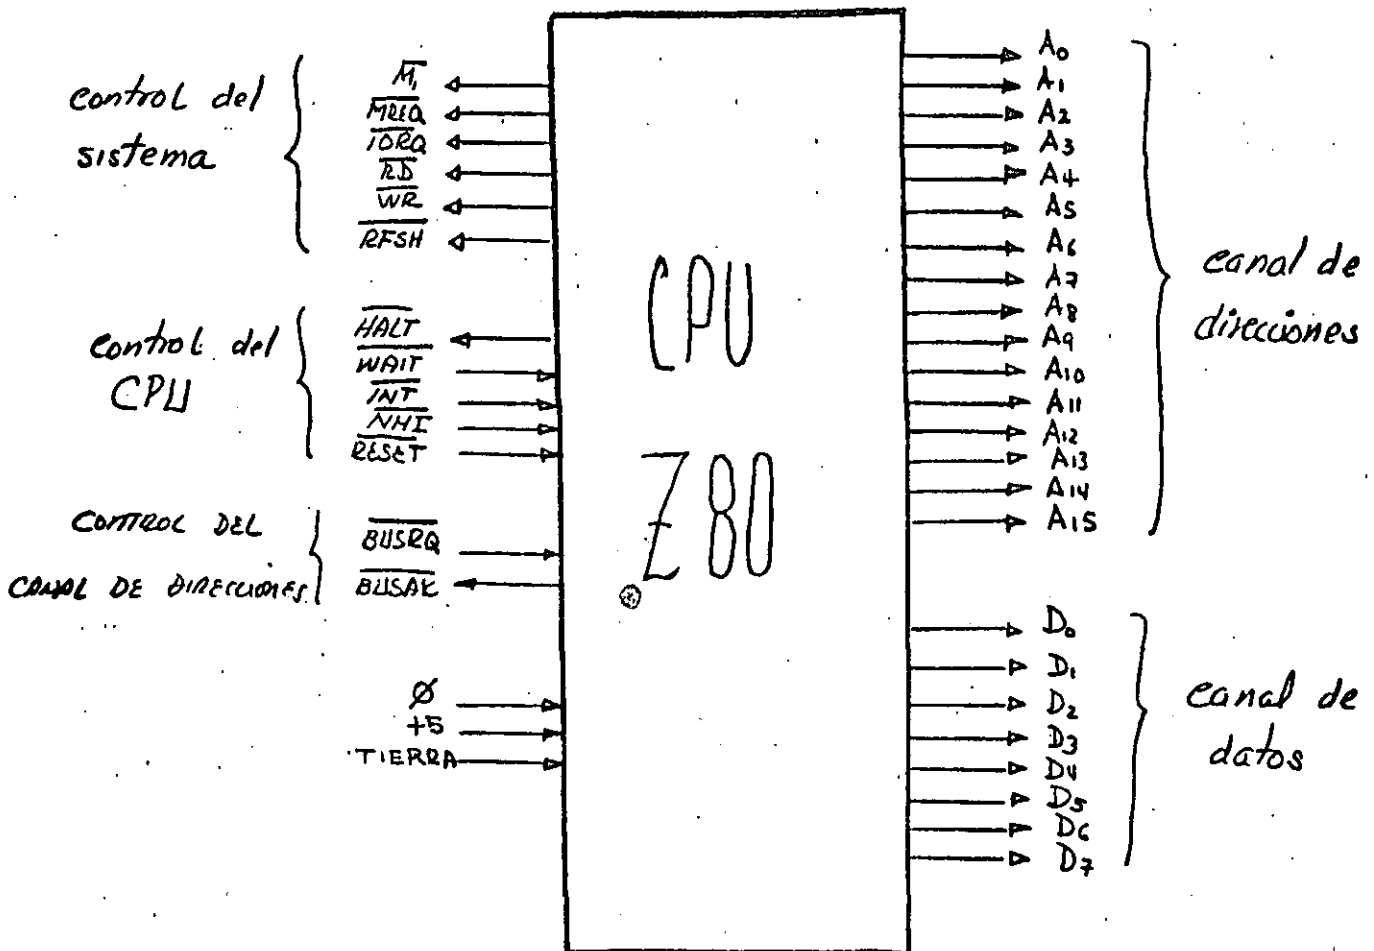 control del
sistema
M̅₁
M̅R̅E̅Q̅
I̅O̅R̅Q̅
R̅D̅
W̅R̅
R̅F̅S̅H̅
control del
CPU
H̅A̅L̅T̅
W̅A̅I̅T̅
I̅N̅T̅
N̅M̅I̅
R̅E̅S̅E̅T̅
CONTROL DEL
CANAL DE DIRECCIONES
B̅U̅S̅R̅Q̅
B̅U̅S̅A̅K̅
Ø
+5
TIERRA
CPU
Z80
A₀
A₁
A₂
A₃
A₄
A₅
A₆
A₇
A₈
A₉
A₁₀
A₁₁
A₁₂
A₁₃
A₁₄
A₁₅
canal de
direcciones
D₀
D₁
D₂
D₃
D₄
D₅
D₆
D₇
canal de
datos